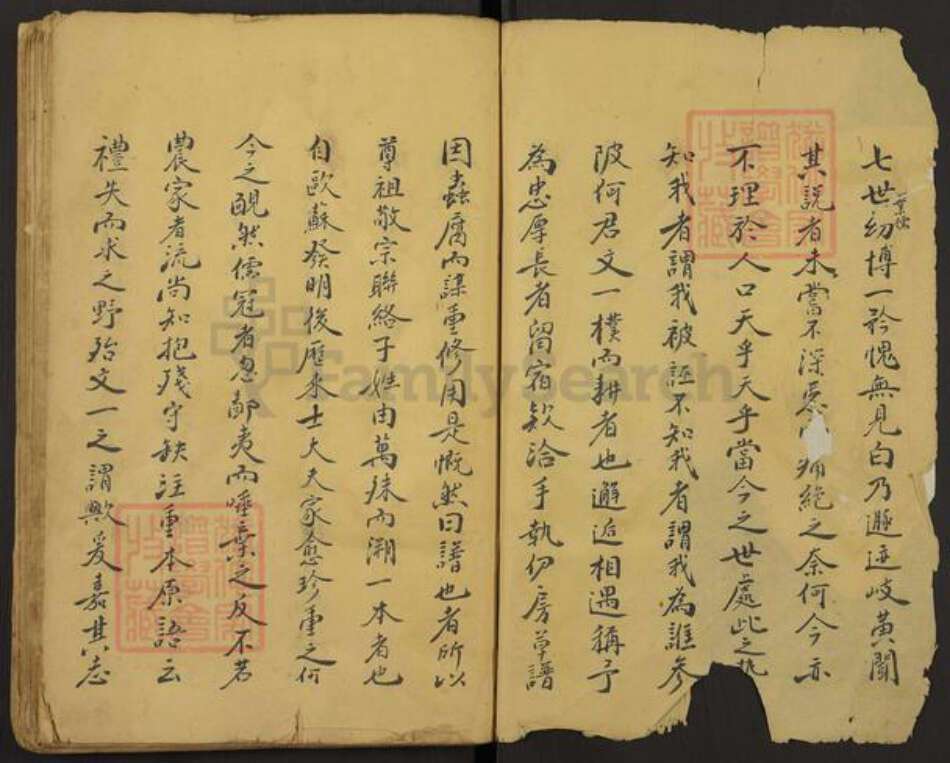 七世幼博一矜愧無見白乃遯迹岐黃聞
業儒
其說者未嘗不深惡痛絕之奈何今亦
不理於人口天乎天乎當今之世處此之
知我者謂我被誣不知我者謂我為誰參
陂何君文一樸而耕者也邂逅相遇稱予
為忠厚長者留宿欵洽手執仍房草譜
因蟲腐而謀重修用是慨然曰譜也者所以
尊祖敬宗聯絡子姓由萬殊而溯一本者也
自歐蘇發明後歷來士大夫家愈珍重之何
今之靦然儒冠者忽鄙夷而唾棄之反不若
農家者流尚知抱殘守缺注重本原語云
禮失而求之野殆文一之謂歟爰嘉其志
FamilySearch